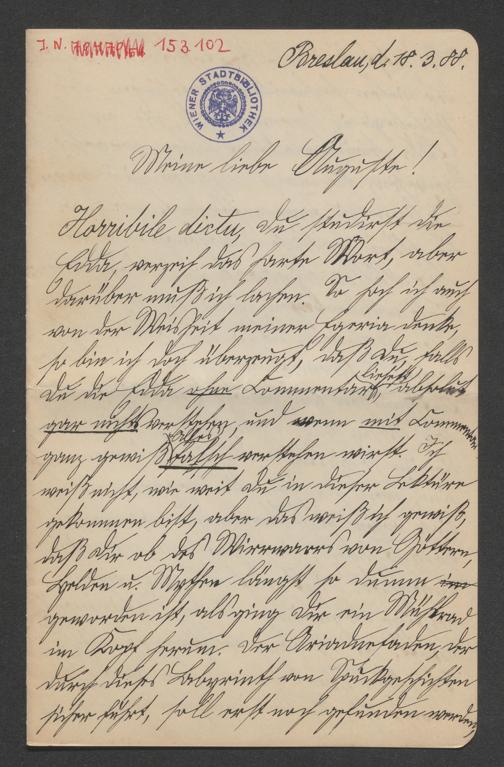 J. N. 153102
WIENER STADTBIBLIOTHEK
Breslau, d. 18. 3. 88.
Meine liebe Auguste!
Horribile dictu, Du studirst die
Edda, verzeih das harte Wort, aber
darüber muß ich lachen. So hoch ich auch
von der Weisheit meiner Egeria denke,
so bin ich doch überzeugt, daß Du, falls
Du die Edda ohne Commentar liesest, absolut
gar nichts verstehen, und wenn mit Commentar
ganz gewiß falsch verstehen wirst. Ich
weiß nicht, wie weit Du in dieser Lektüre
gekommen bist, aber das weiß ich gewiß,
daß Dir ob des Wirrwarrs von Göttern,
Helden u. Mythen längst so dumm
geworden ist, als ging Dir ein Mühlrad
im Kopf herum. Der Ariadnefaden, der
durch dieses Labyrinth von Spukgeschichten
sicher führt, soll erst noch gefunden werden,